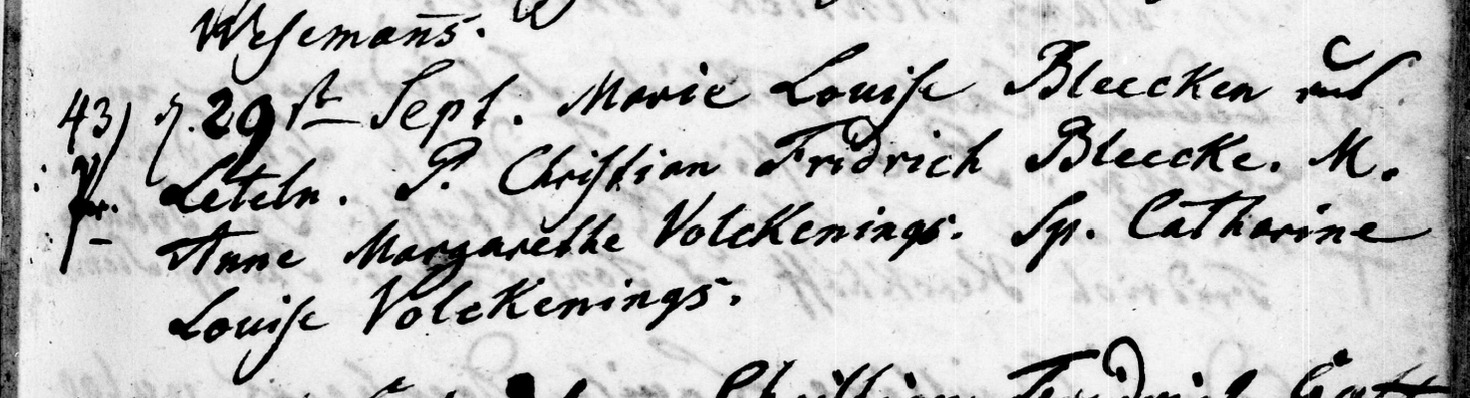 Wesemanns.
43) d. 29st Sept. Marie Louise Bleecken aus
Leteln. P. Christian Fridrich Bleecke. M.
Anne Margarethe Volckenings. Sp. Catharine
Louise Volckenings.
Christian Fridrich Gott